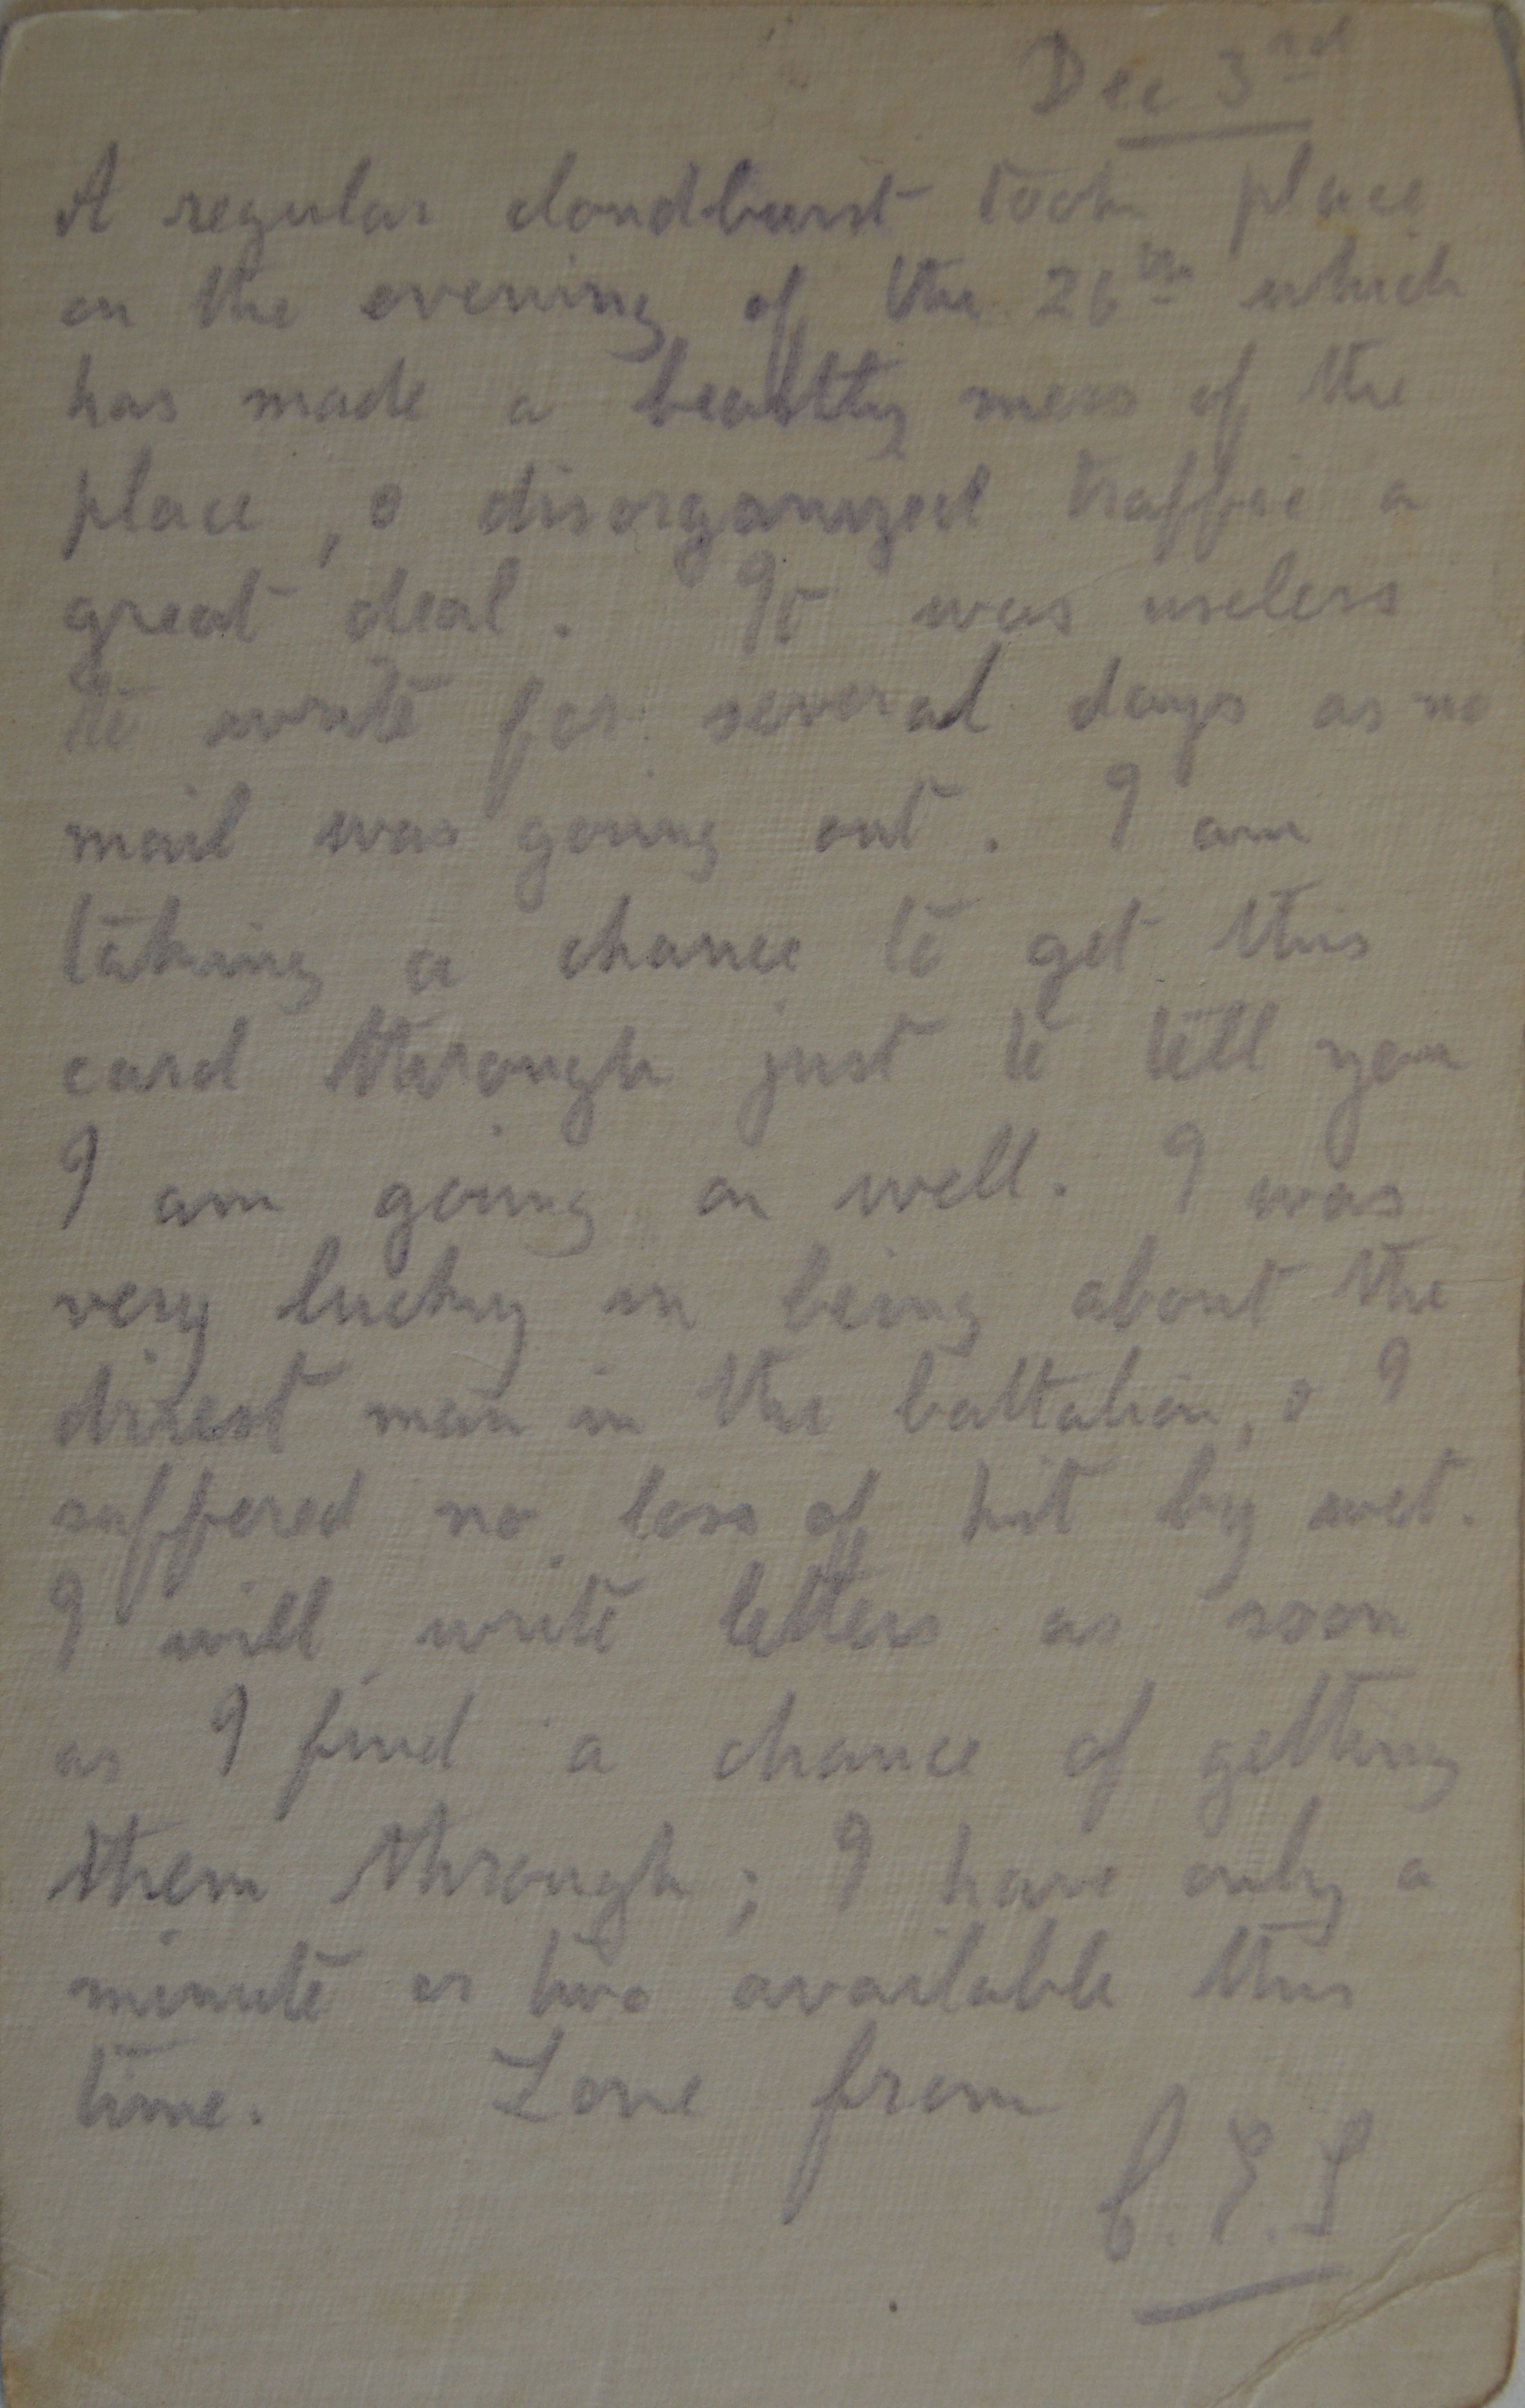 Dec 3rd
A regular cloudburst took place
on the evening of the 26th which
has made a beastly mess of the
place, & disorganized traffic a
great deal. It was useless
to write for several days as no
mail was going out. I am
taking a chance to get this
card through just to tell you
I am going on well. I was
very lucky in being about the
driest man in the battalion, & I
suffered no loss of kit by wet.
I will write letters as soon
as I find a chance of getting
them through; I have only a
minute or two available this
time. Love from